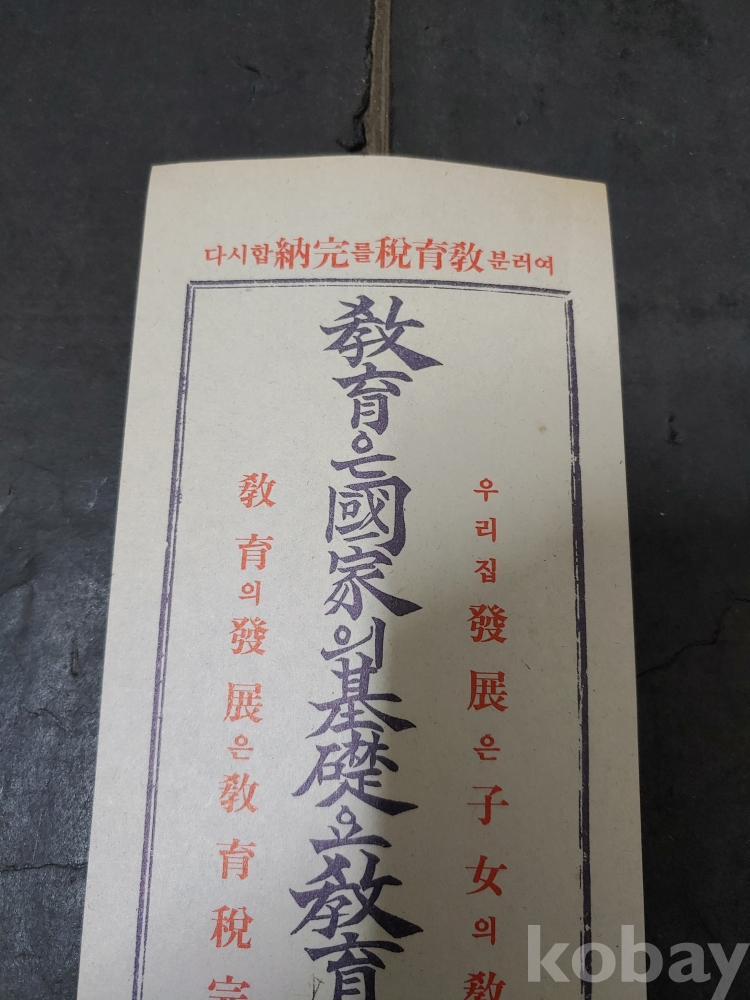 여러분敎育稅를完納합시다
우리집發展은子女의敎
敎育은國家의基礎요敎育
敎育의發展은敎育稅完
kobay